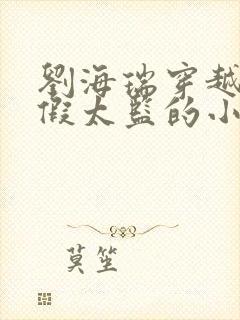 劉海瑞穿越
假太監的小
莫笙